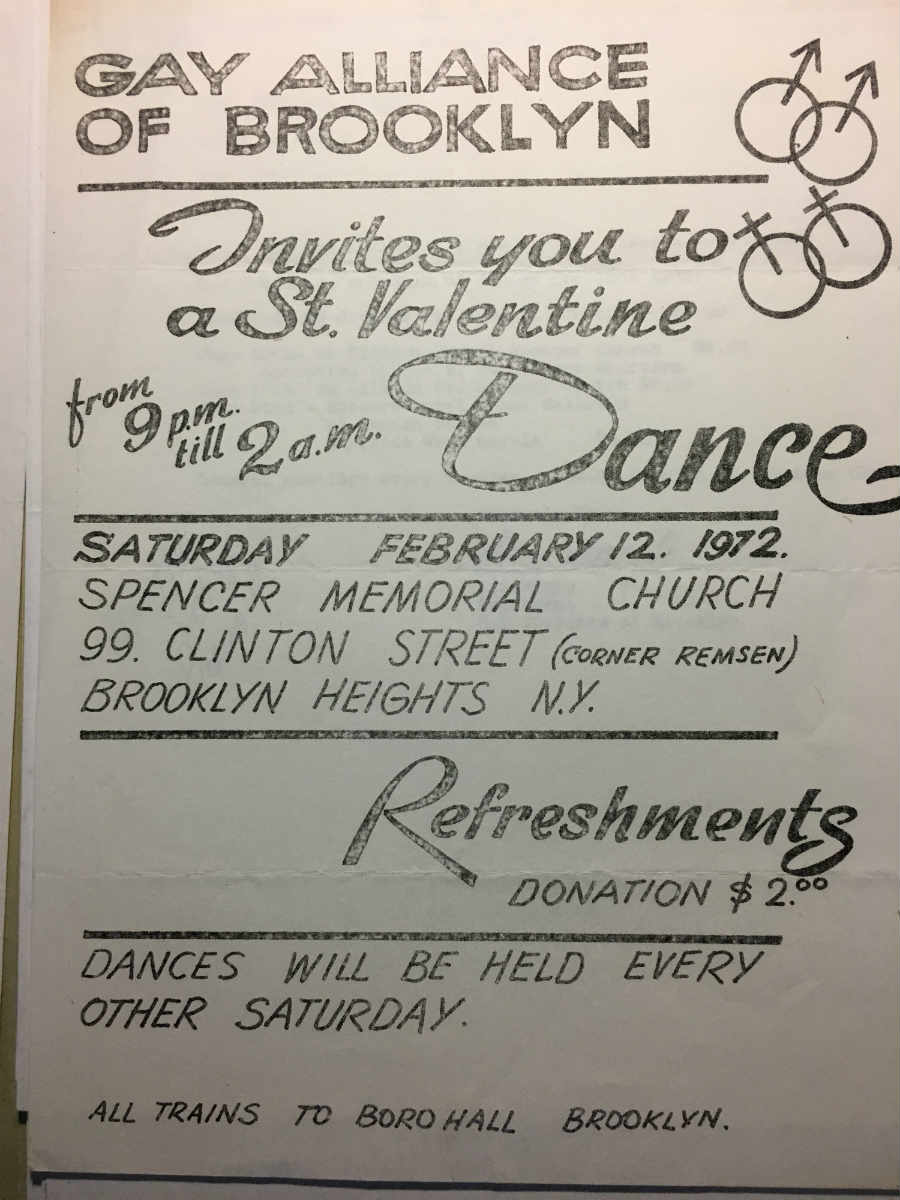 GAY ALLIANCE
OF BROOKLYN
Invites you to
a St. Valentine
Dance
from
9 p.m.
till 2 a.m.
SATURDAY FEBRUARY 12. 1972.
SPENCER MEMORIAL CHURCH
99. CLINTON STREET (CORNER REMSEN)
BROOKLYN HEIGHTS N.Y.
Refreshments
DONATION $ 2.00
DANCES WILL BE HELD EVERY
OTHER SATURDAY.
ALL TRAINS TO BORO HALL BROOKLYN.